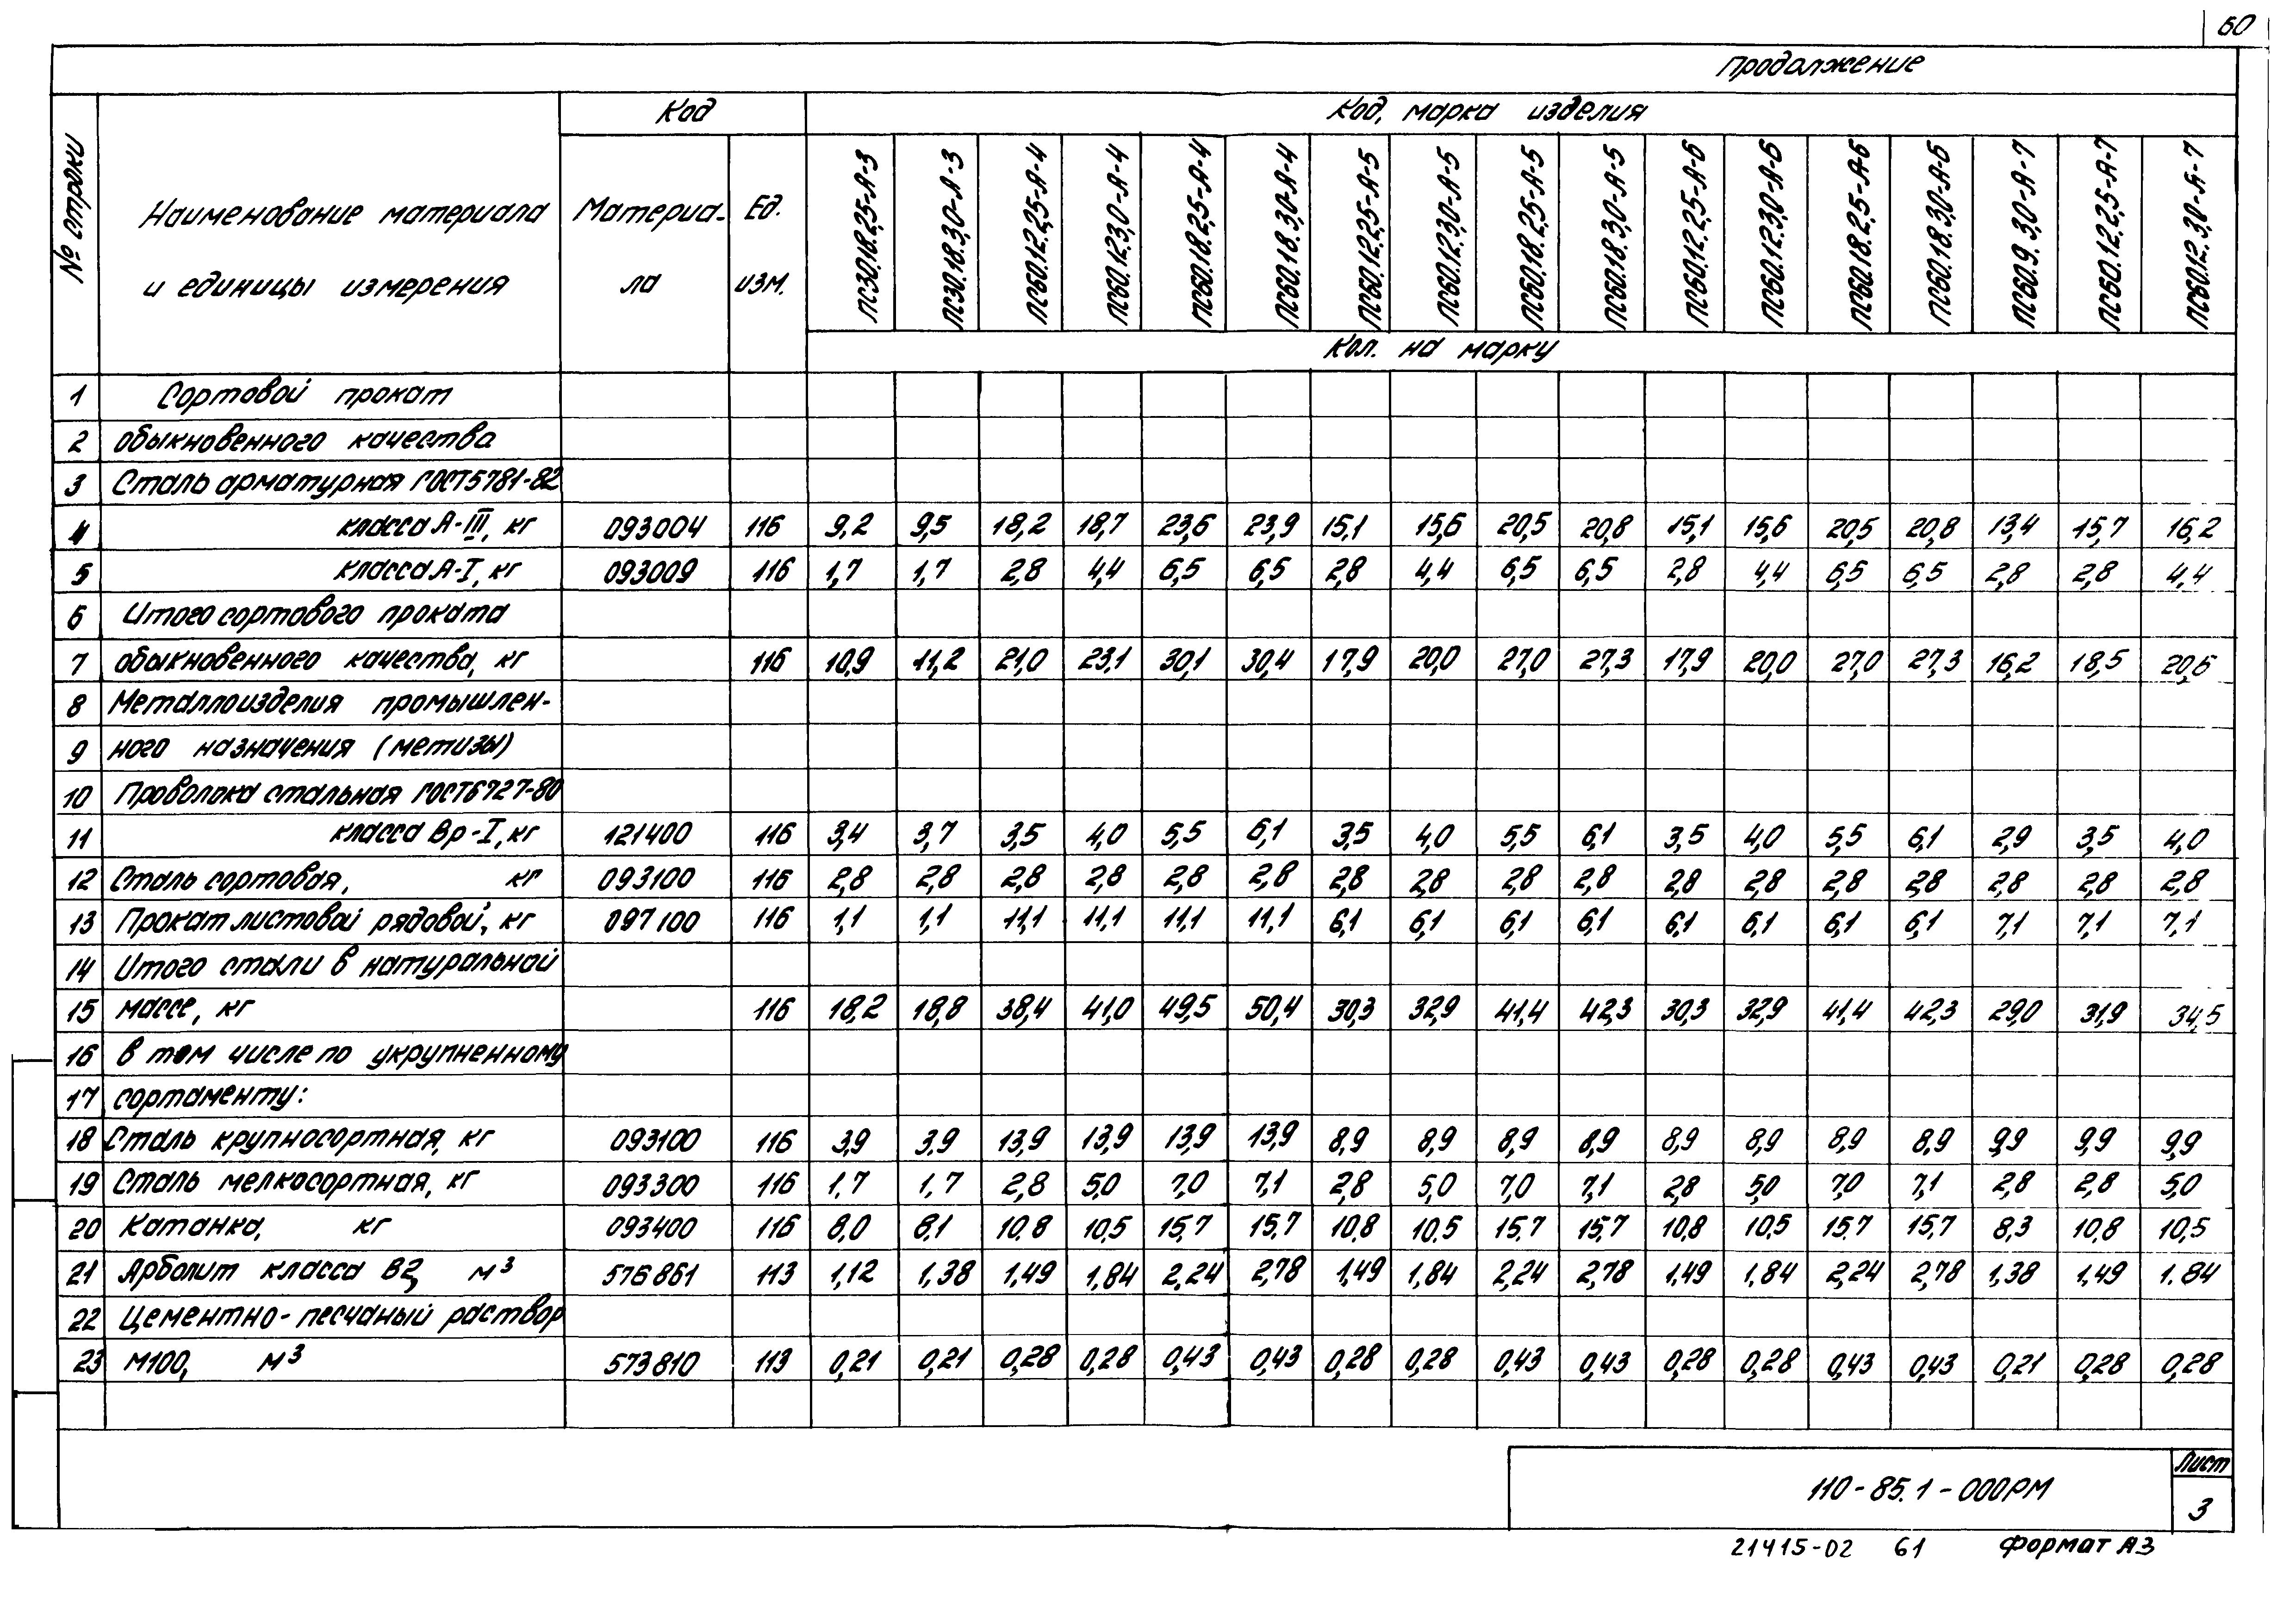 60
Продолжение
№ строки
Наименование материала
и единицы измерения
Код
Материа-
ла
Ед.
изм.
Код, марка изделия
ПС30.18.2,5-А-3
ПС30.18.3,0-А-3
ПС60.12.2,5-А-4
ПС60.12.3,0-А-4
ПС60.18.2,5-А-4
ПС60.18.3,0-А-4
ПС60.12.2,5-А-5
ПС60.12.3,0-А-5
ПС60.18.2,5-А-5
ПС60.18.3,0-А-5
ПС60.12.2,5-А-6
ПС60.12.3,0-А-6
ПС60.18.2,5-А-6
ПС60.18.3,0-А-6
ПС60.9.3,0-А-7
ПС60.12.2,5-А-7
ПС60.12.3,0-А-7
Кол. на марку
1 Сортовой прокат
2 обыкновенного качества
3 Сталь арматурная ГОСТ 5781-82
4 класса А-III, кг 093004 116 9,2 9,5 18,2 18,7 23,6 23,9 15,1 15,6 20,5 20,8 15,1 15,6 20,5 20,8 13,4 15,7 16,2
5 класса А-I, кг 093009 116 1,7 1,7 2,8 4,4 6,5 6,5 2,8 4,4 6,5 6,5 2,8 4,4 6,5 6,5 2,8 2,8 4,4
6 Итого сортового проката
7 обыкновенного качества, кг 116 10,9 11,2 21,0 23,1 30,1 30,4 17,9 20,0 27,0 27,3 17,9 20,0 27,0 27,3 16,2 18,5 20,6
8 Металлоизделия промышлен-
9 ного назначения (метизы)
10 Проволока стальная ГОСТ 6727-80
11 класса Вр-I, кг 121400 116 3,4 3,7 3,5 4,0 5,5 6,1 3,5 4,0 5,5 6,1 3,5 4,0 5,5 6,1 2,9 3,5 4,0
12 Сталь сортовая, кг 093100 116 2,8 2,8 2,8 2,8 2,8 2,8 2,8 2,8 2,8 2,8 2,8 2,8 2,8 2,8 2,8 2,8 2,8
13 Прокат листовой рядовой, кг 097100 116 1,1 1,1 11,1 11,1 11,1 11,1 6,1 6,1 6,1 6,1 6,1 6,1 6,1 6,1 7,1 7,1 7,1
14 Итого стали в натуральной
15 массе, кг 116 18,2 18,8 38,4 41,0 49,5 50,4 30,3 32,9 41,4 42,3 30,3 32,9 41,4 42,3 29,0 31,9 34,5
16 в том числе по укрупненному
17 сортаменту:
18 Сталь крупносортная, кг 093100 116 3,9 3,9 13,9 13,9 13,9 13,9 8,9 8,9 8,9 8,9 8,9 8,9 8,9 8,9 9,9 9,9 9,9
19 Сталь мелкосортная, кг 093300 116 1,7 1,7 2,8 5,0 7,0 7,1 2,8 5,0 7,0 7,1 2,8 5,0 7,0 7,1 2,8 2,8 5,0
20 Катанка, кг 093400 116 8,0 8,1 10,8 10,5 15,7 15,7 10,8 10,5 15,7 15,7 10,8 10,5 15,7 15,7 8,3 10,8 10,5
21 Арболит класса В2, м³ 576861 113 1,12 1,38 1,49 1,84 2,24 2,78 1,49 1,84 2,24 2,78 1,49 1,84 2,24 2,78 1,38 1,49 1.84
22 Цементно-песчаный раствор
23 М100, м³ 573810 113 0,21 0,21 0,28 0,28 0,43 0,43 0,28 0,28 0,43 0,43 0,28 0,28 0,43 0,43 0,21 0,28 0,28
110-85.1-000РМ
Лист
3
21415-02 61 Формат А3